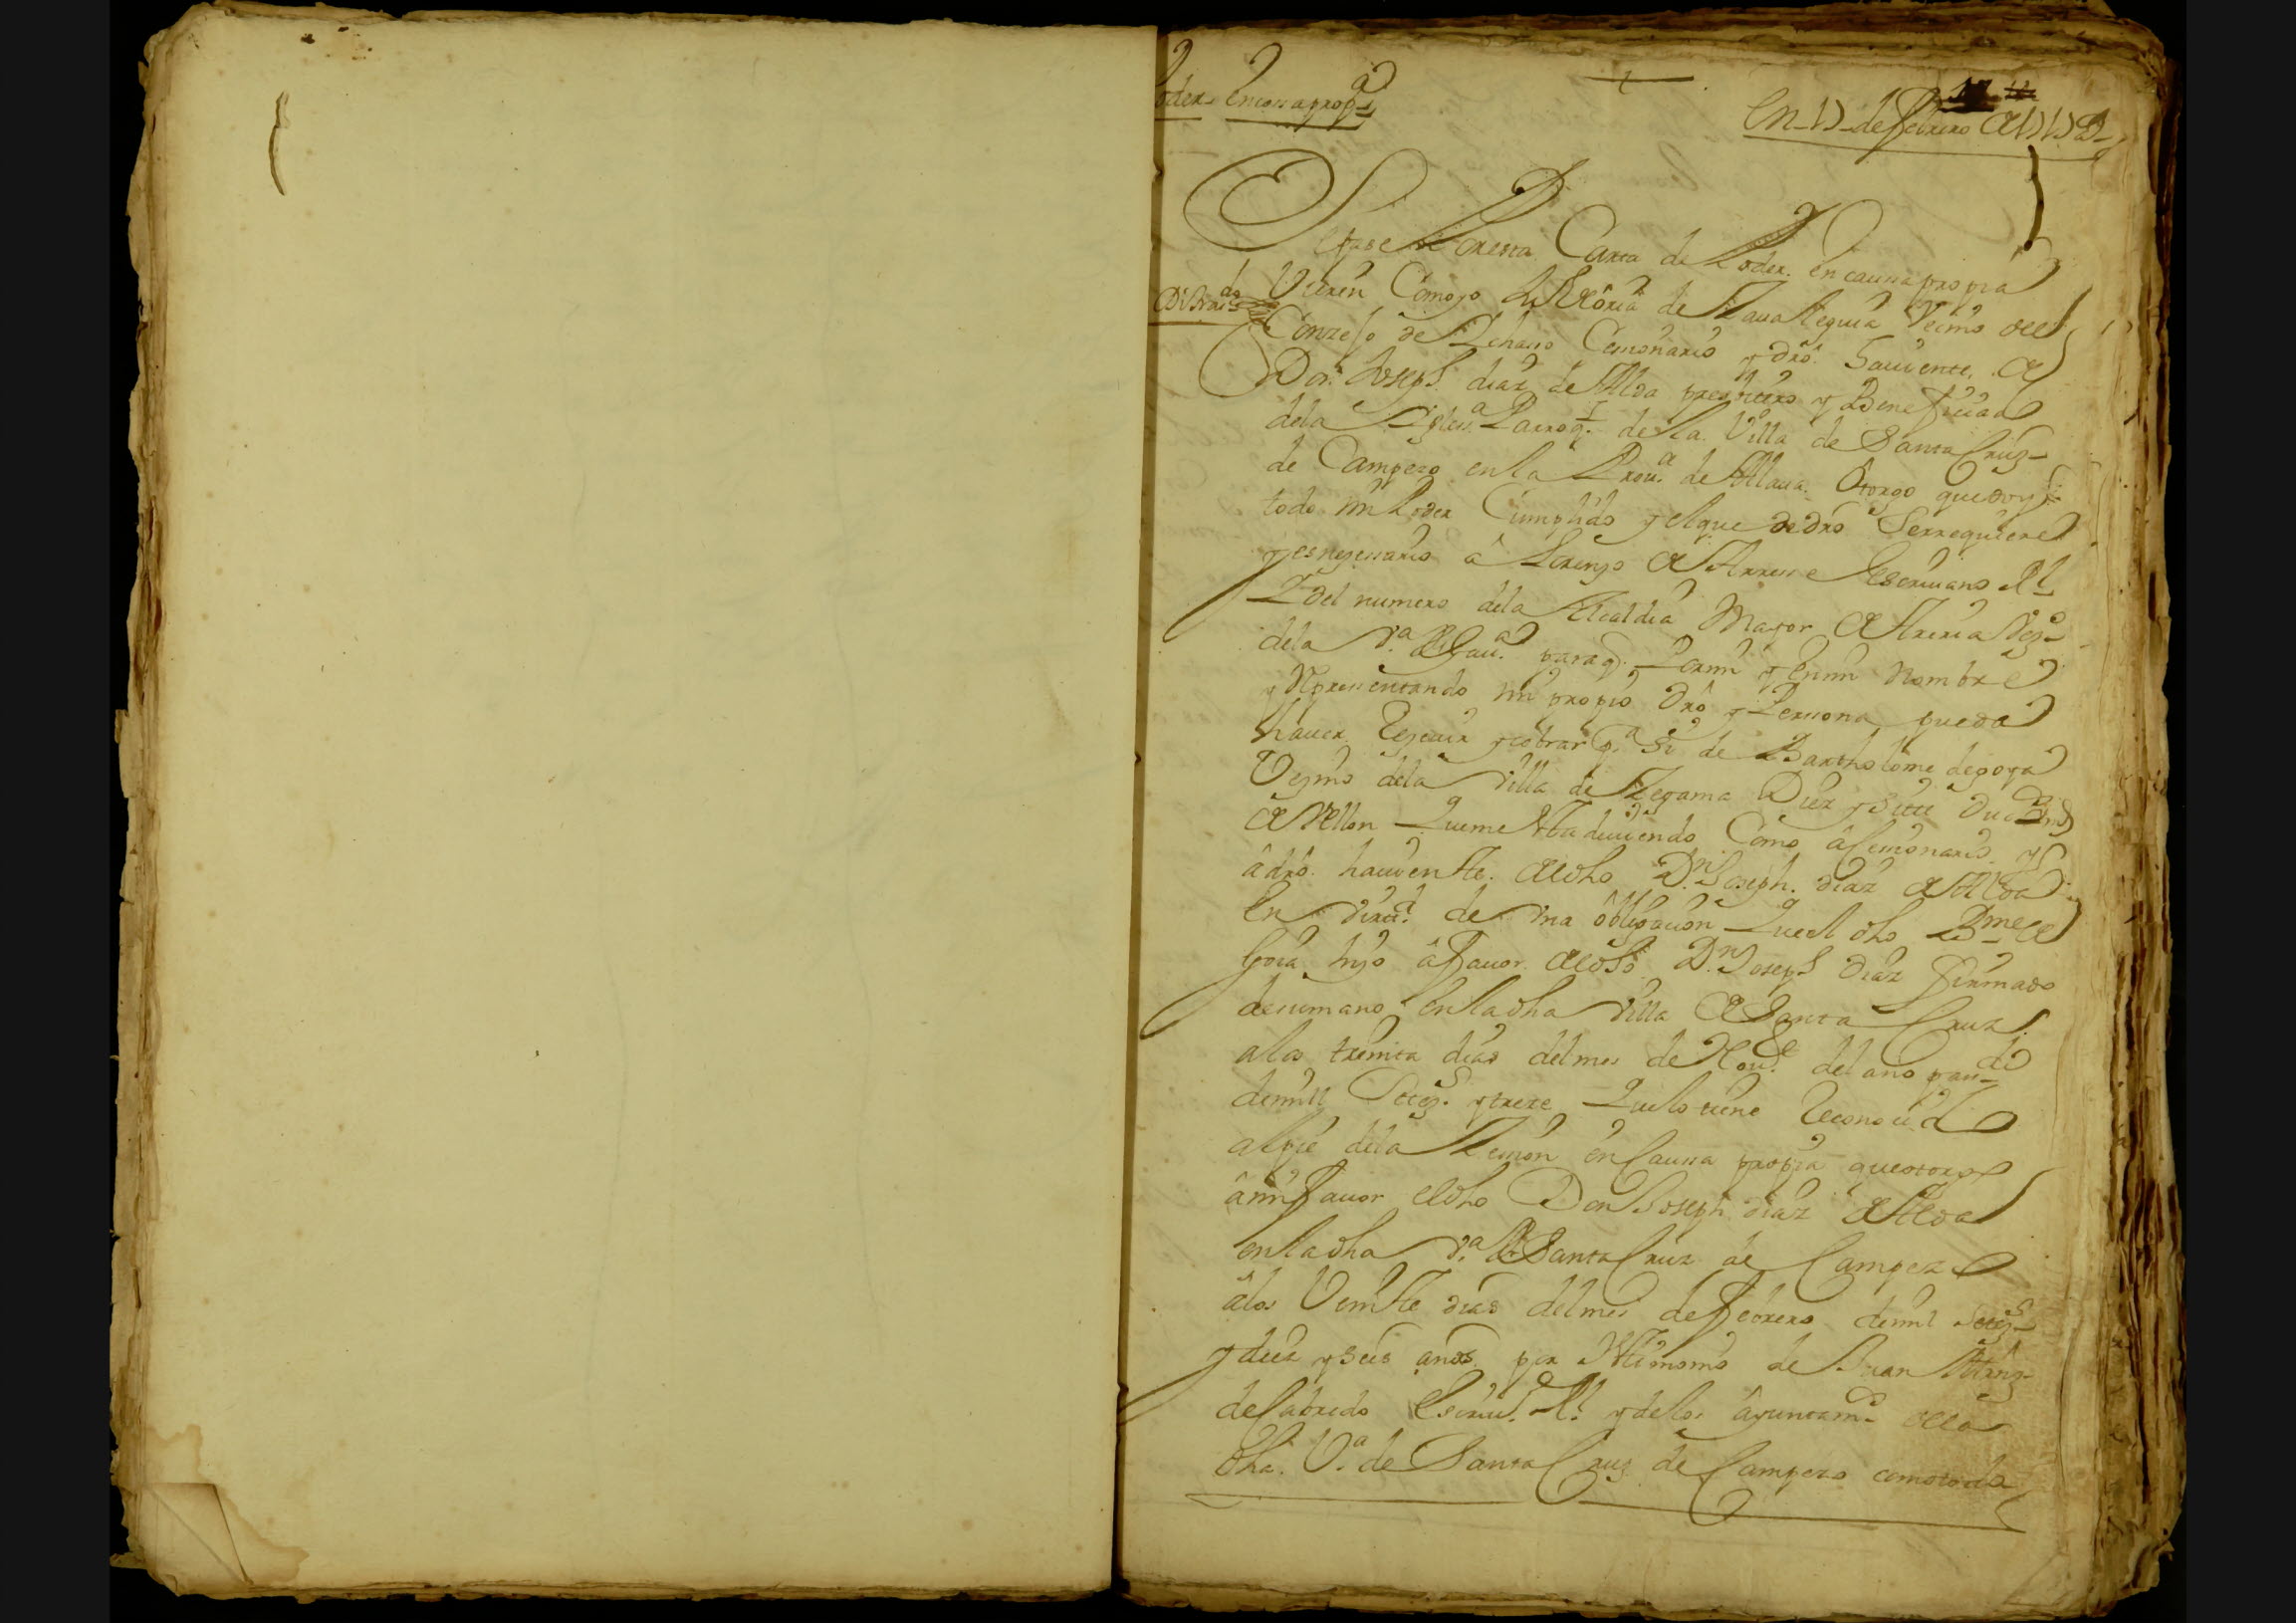 Poder en causa propª
En 17 de febrero de 1717
Sepase Por esta Carta de Poder en causa propia
Vieren Como yo de Zaualeguia Vecino del
Conzejo de Lehano Cesionario y dro. hauiente de
Don Joseph diaz de Alda presbitero y Beneficiado
dela Iglesª Parroql de la Villa de Santa Cruz
de Campezo en la Prouª de Alaua. Otorgo que doy
todo mi Poder Cumplido y el que de dro Se rrequiere
y es nezesario â Lorenzo de Escriuano Rl
del numero dela Alcaldia Mayor de Areria Vezº
dela Vª de para q. Por mi y en mi Nombre
y Representando mi propio dro y Persona pueda
hauer Reciuir y cobrar pª si de Bartholome de goya
Vezino dela villa de Zegama Diez y siete Ducados
de Vellon Que me esta deuiendo Como â Cesionario y
â dro hauiente del dho Dn Joseph diaz de Alda
en virtud de vna obligazion Que el dho Bme de
Goia hizo â fauor del dho Dn Joseph diaz firmado
de su mano en la dha villa de Santa Cruz
a los treinta dias del mes de Noue del año pasado
de mill Setezs y treze Que lo tiene Reconocido
al pie dela Zesion en Causa propia que otorgo
â mi fauor el dho Don Joseph diaz de Alda
en la dha vª de Santa Cruz de Campezo
â los Veinte dias del mes de febrero de mil Setezs
y diez y seis años por testimonio de Juan Mrnz
de Cabredo Escriuº Rl y de los ayuntamos dela
dha. Vª de Santa Cruz de Campezo como todo